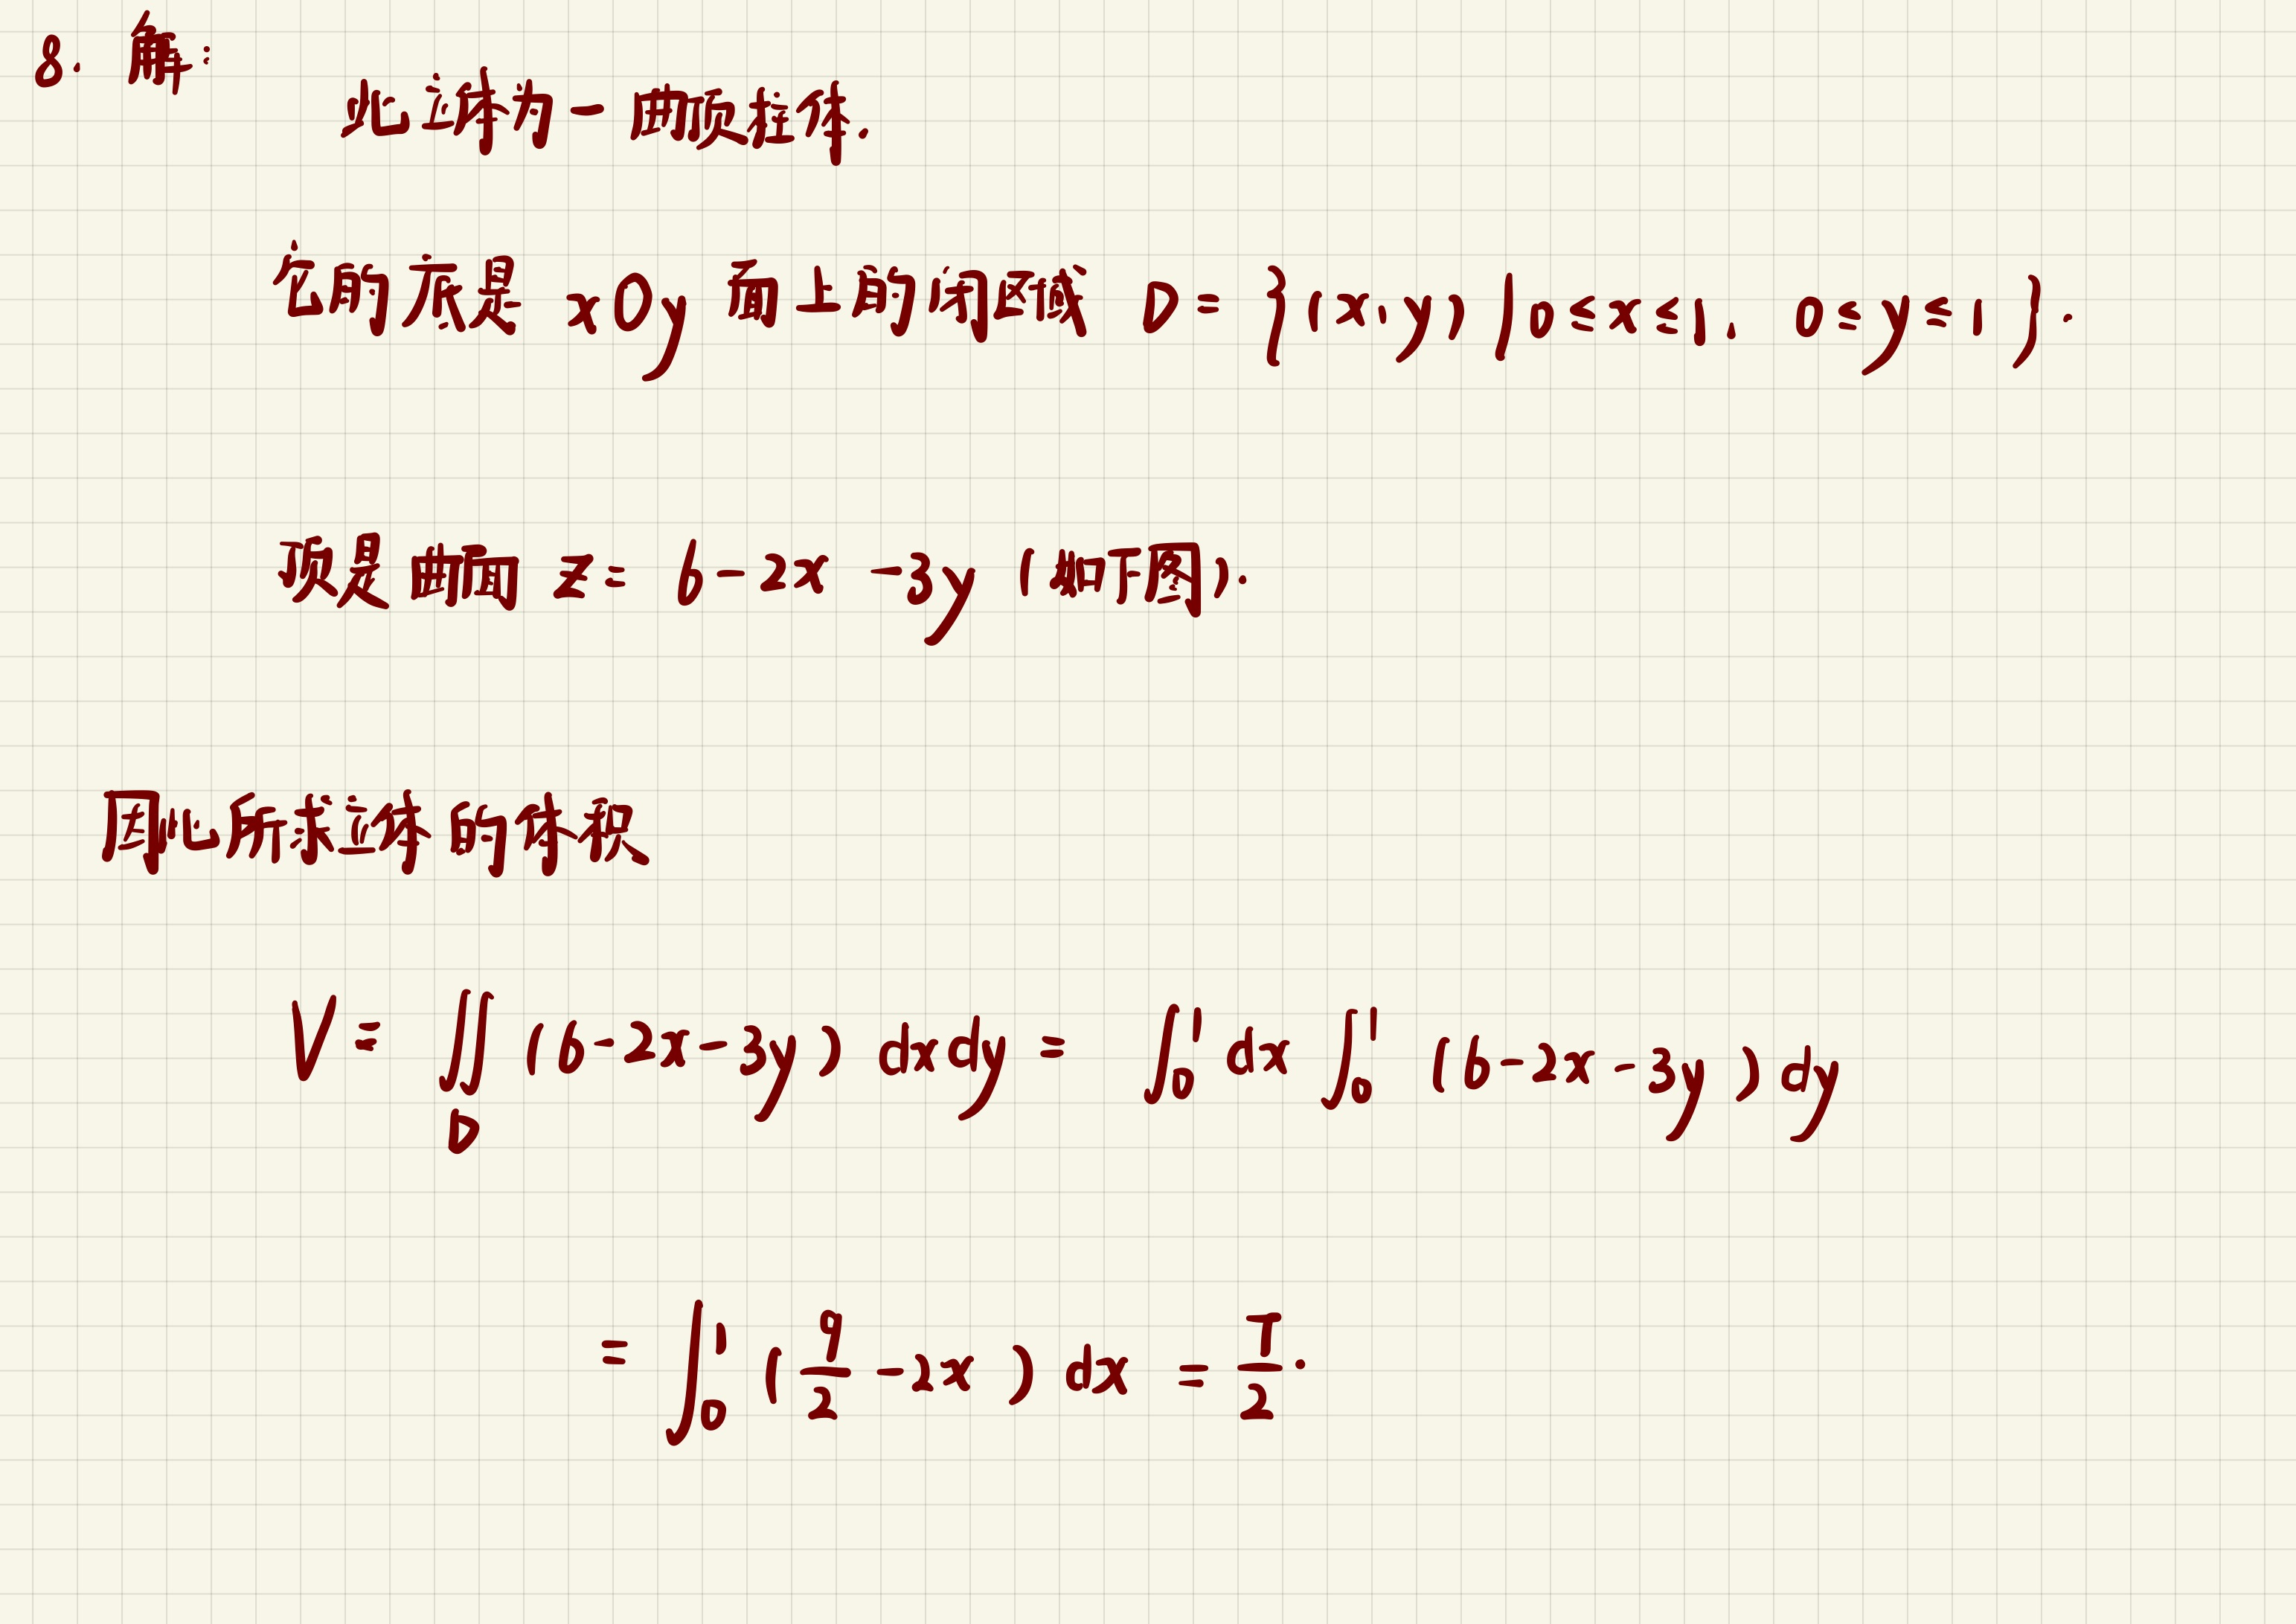 8. 解：
此立体为一曲顶柱体.
它的底是 xOy 面上的闭区域 D={(x,y)|0≤x≤1, 0≤y≤1}.
顶是曲面 z=6-2x-3y (如下图).
因此所求立体的体积
V=∬_D (6-2x-3y) dxdy = ∫_0^1 dx ∫_0^1 (6-2x-3y) dy
= ∫_0^1 (9/2 -2x) dx = 7/2.